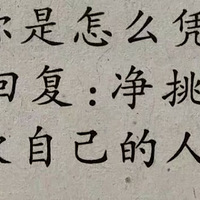 你是怎么凭
回复:净挑
自己的人